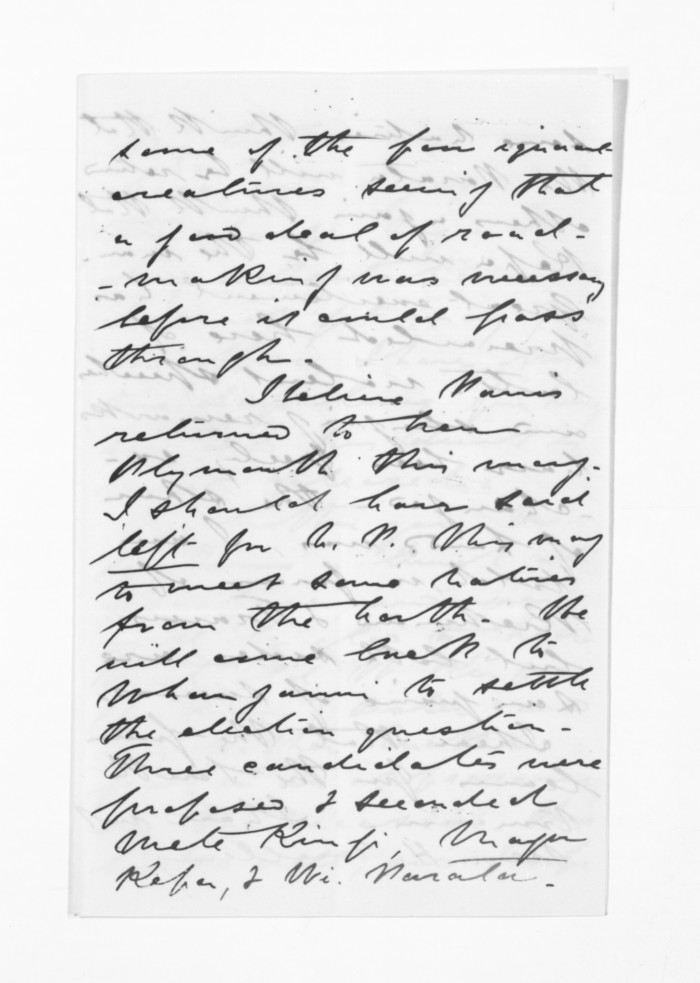 some of the poor ignorant
creatures seeing that
a good deal of road-
-making was necessary
before it could pass
through.
I believe Parris
returned to New
Plymouth this morg.
I should have said
left for N. P. this morg
to meet some natives
from the North. He
will come back to
Whanganui to settle
the election question.
Three candidates were
proposed & seconded
Mete Kingi, Major
Kepa, & Wi. Parata.